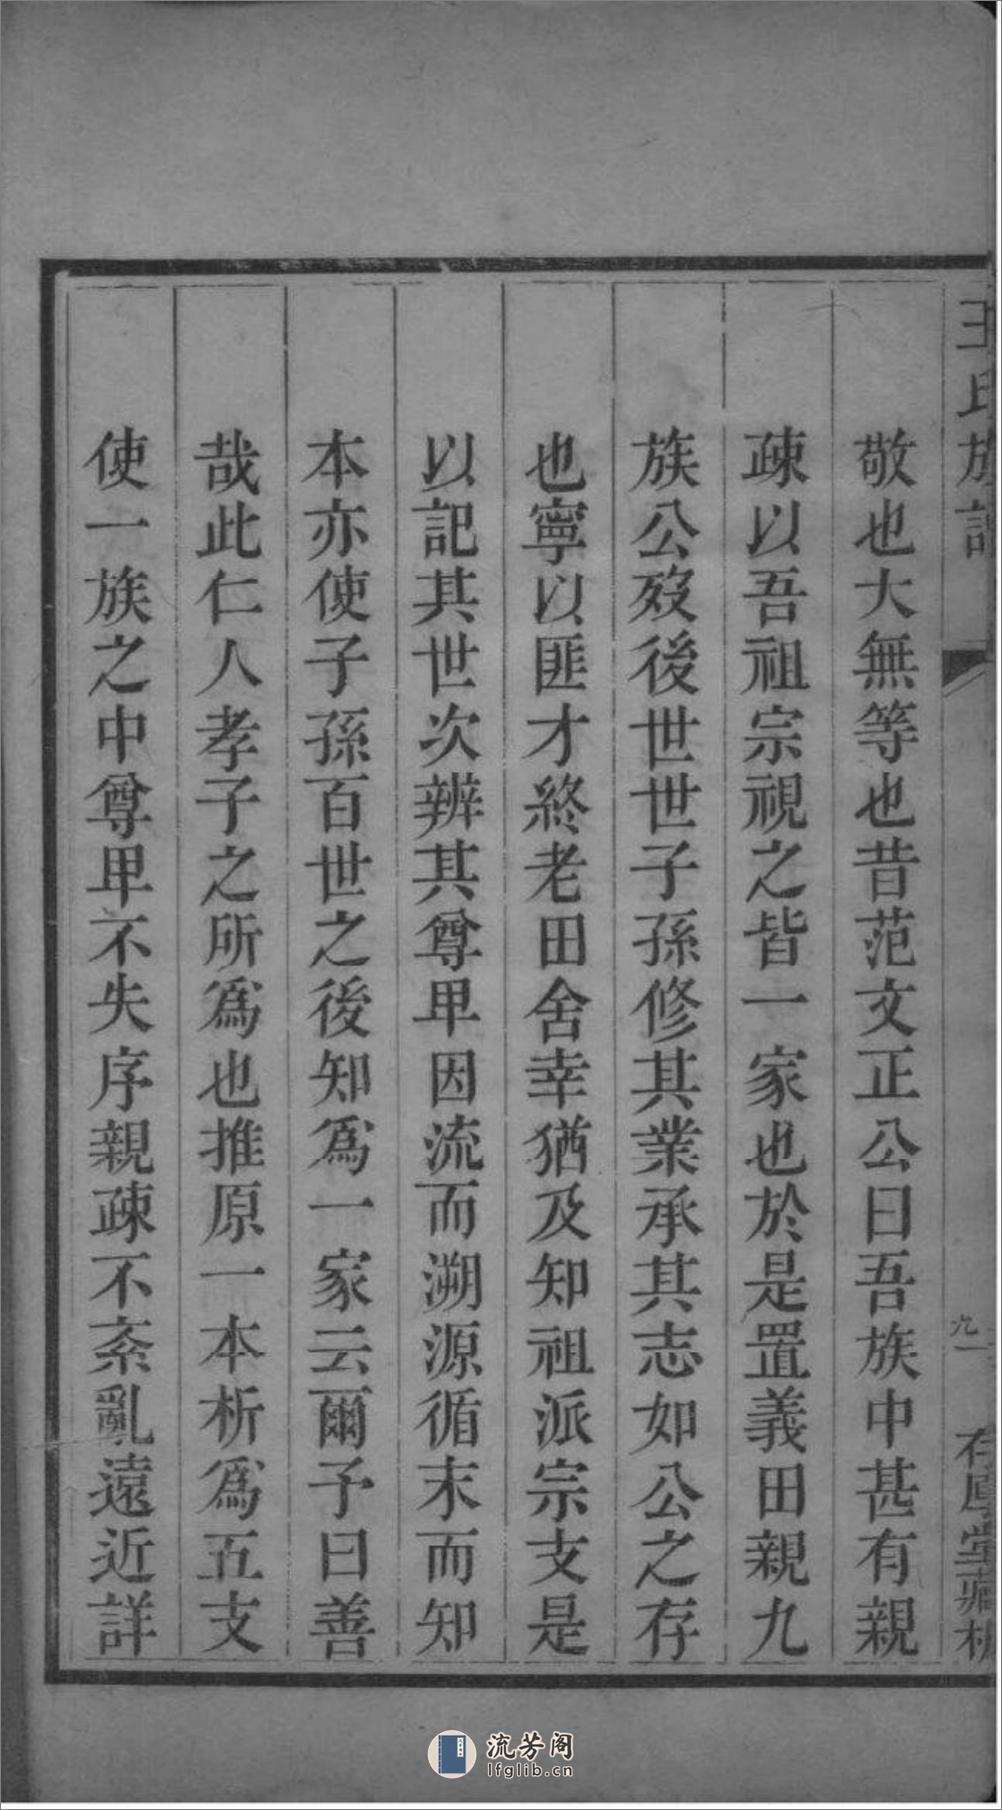 王氏族譜
九一
存厚堂藏板
敬也大無等也昔范文正公曰吾族中甚有親
疎以吾祖宗視之皆一家也於是置義田親九
族公歿後世世子孫修其業承其志如公之存
也寧以匪才終老田舍幸猶及知祖派宗支是
以記其世次辨其尊卑因流而溯源循末而知
本亦使子孫百世之後知爲一家云爾予曰善
哉此仁人孝子之所爲也推原一本析爲五支
使一族之中尊卑不失序親疎不紊亂遠近詳
流芳阁
lfglib.cn